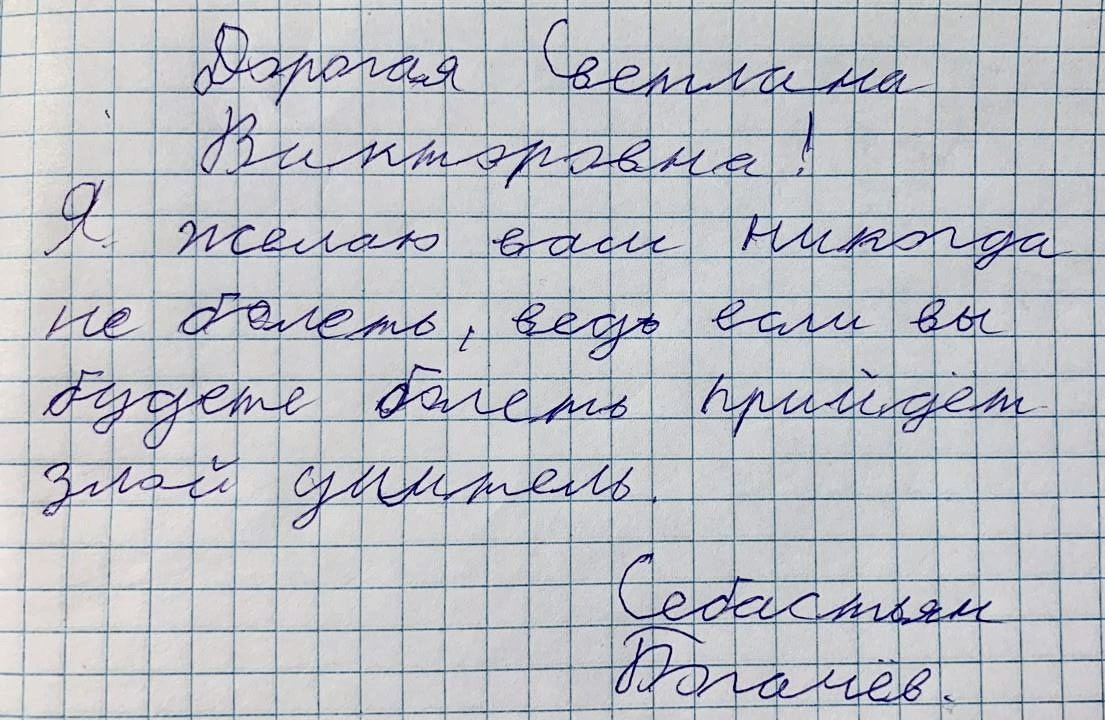 Дорогая Светлана
Викторовна!
Я желаю вам никогда
не болеть, ведь если вы
будете болеть прийдёт
злой учитель.
Себастьян
Погачёв.